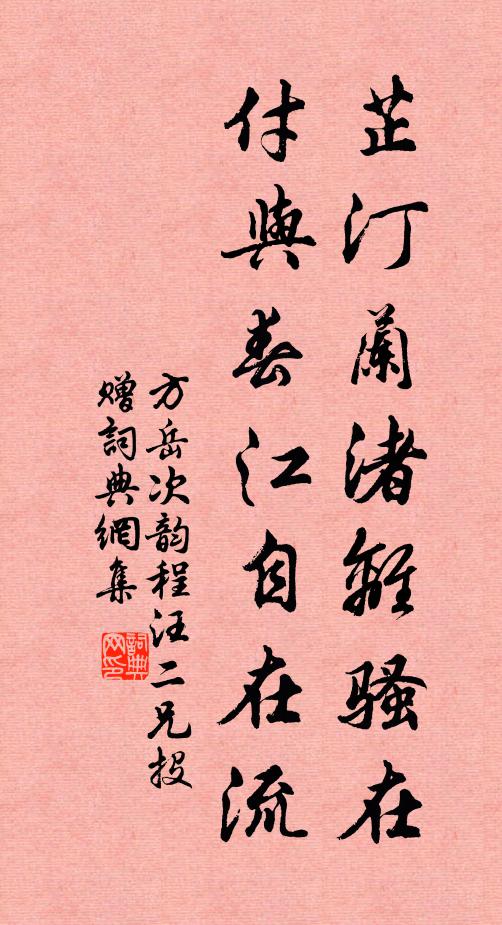 芷汀蘭渚離騷在
付與春江自在流
方岳次韵程汪二兄投
贈詞典網集
詞典网印